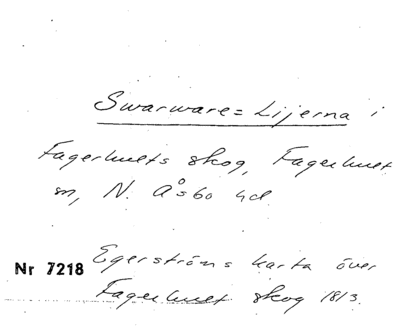 Swarware=Lijerna i
Fagerhults skog, Fagerhult
sn, N. Åsbo hd
Egerströms karta över
Nr 7218
Fagerhult skog 1813.